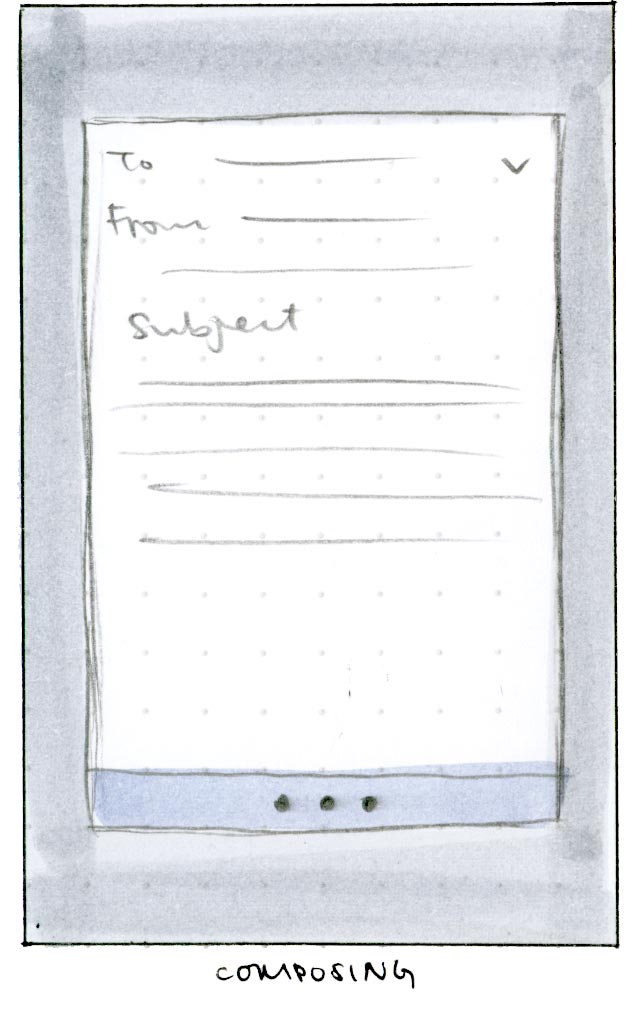 To
From
Subject
COMPOSING